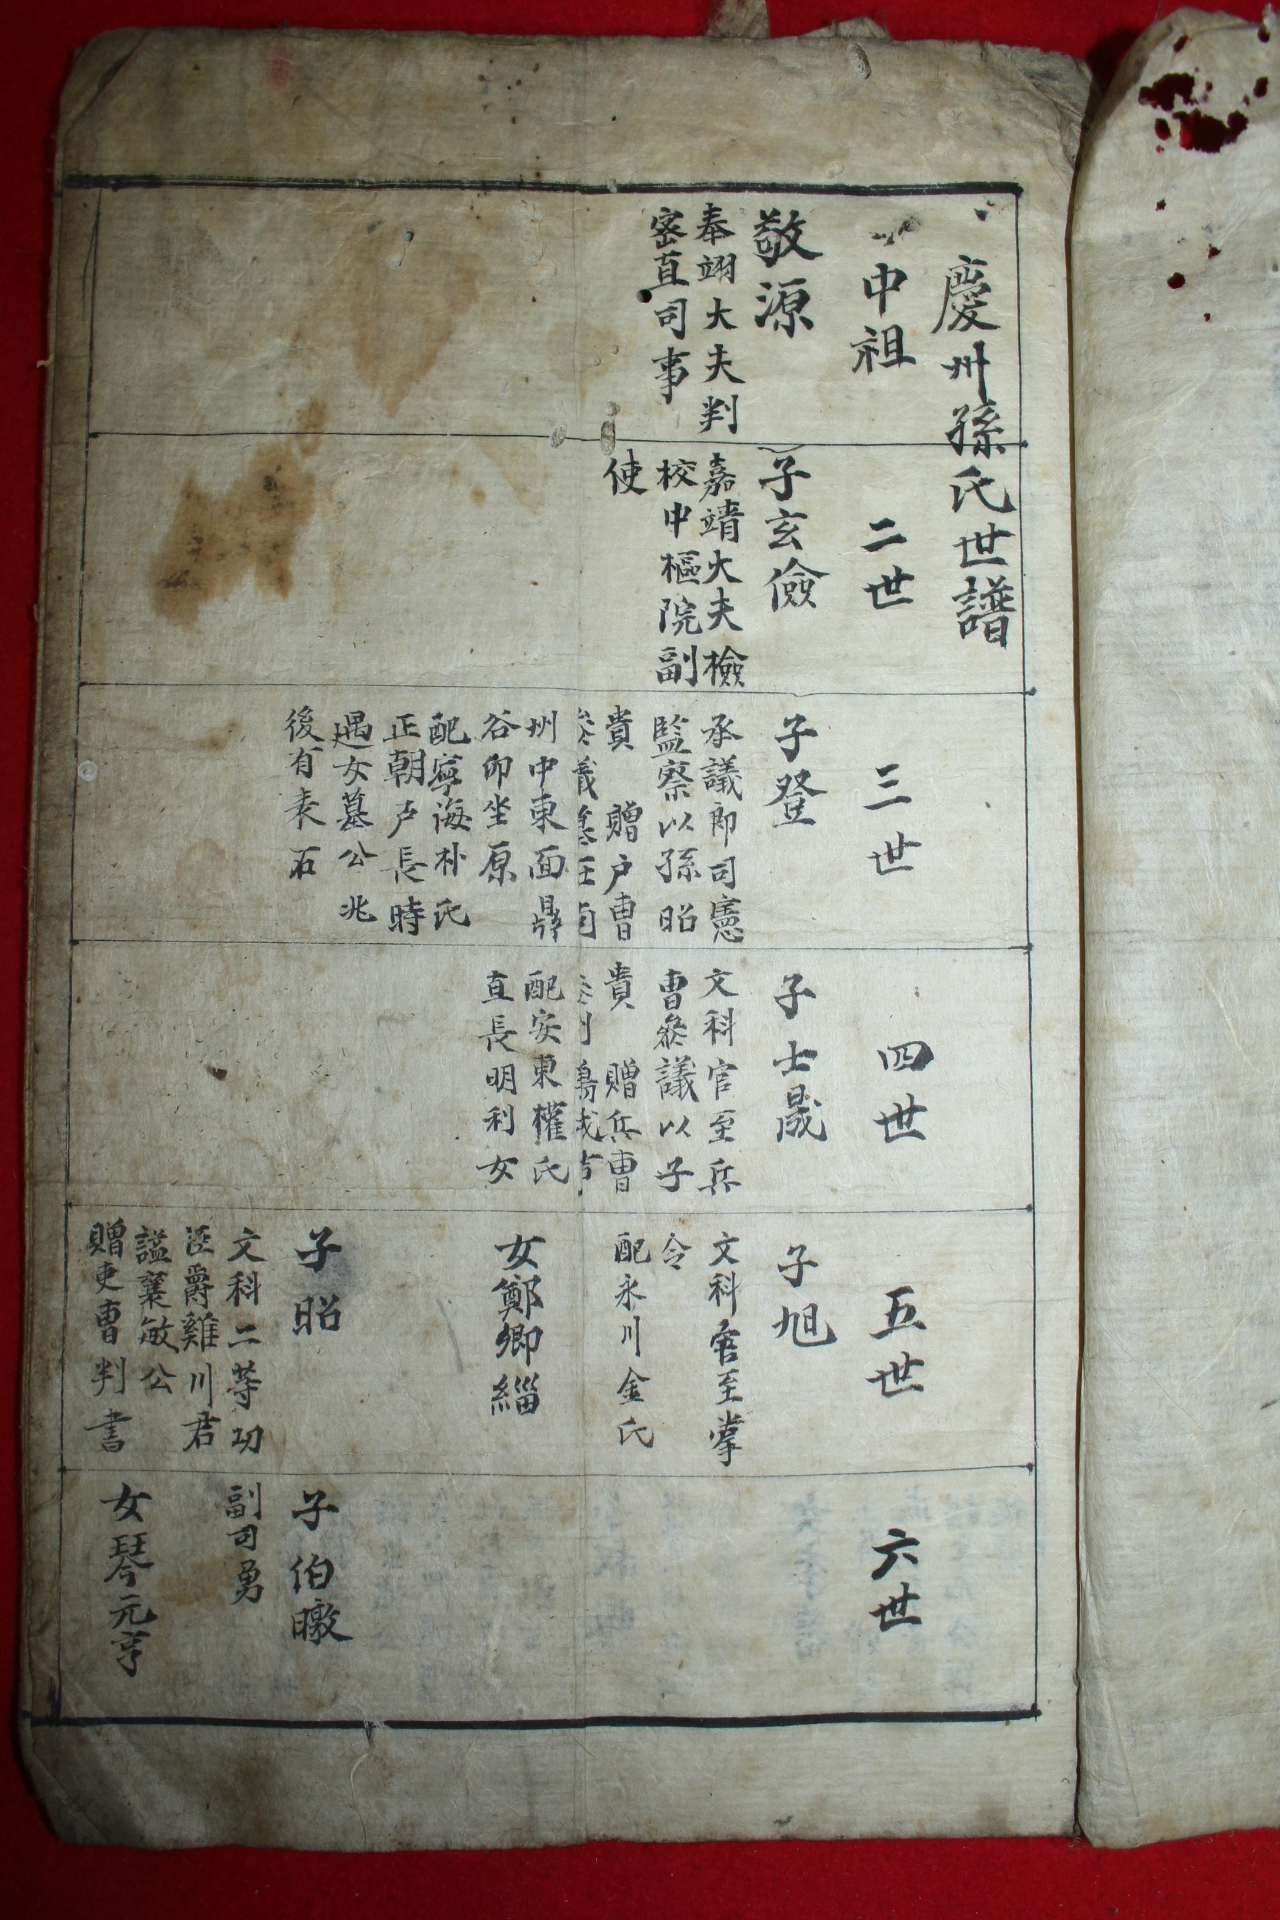 慶州孫氏世譜
中祖
敬源
奉翊大夫判
密直司事
二世
子玄儉
嘉靖大夫檢
校中樞院副
使
三世
子登
承議郎司憲
監察以孫昭
貴 贈戶曹
州中東面
谷卯坐原
配寧海朴氏
正朝戶長時
遇女墓公兆
後有表石
四世
子士晟
文科官至兵
曹參議以子
貴 贈兵曹
配安東權氏
直長明利女
五世
子旭
文科官至掌
令
配永川金氏
女鄭鄉緇
子昭
文科二等功
爵雞川君
諡襄敏公
贈吏曹判書
六世
子伯暾
副司勇
女琴元亨